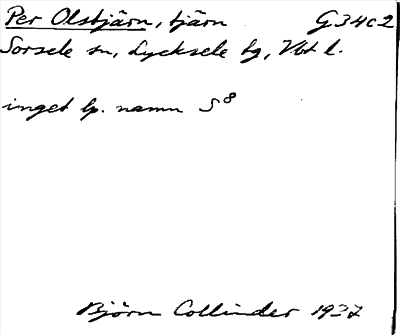 Per Olsbjärn, tjärn G34c2
Sorsele sn, Lycksele tg, Vbt l.
inget lp. namn S8
Björn Collinder 1937